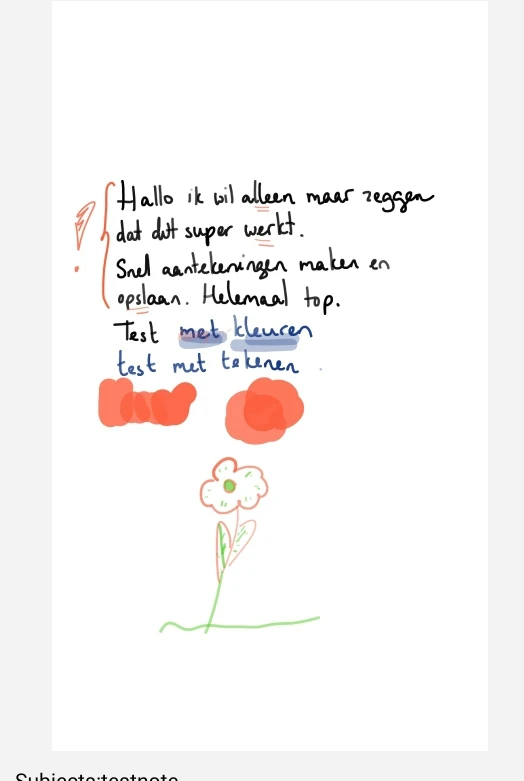 Hallo ik wil alleen maar zeggen
dat dit super werkt.
Snel aantekeningen maken en
opslaan. Helemaal top.
Test met kleuren
test met tekenen